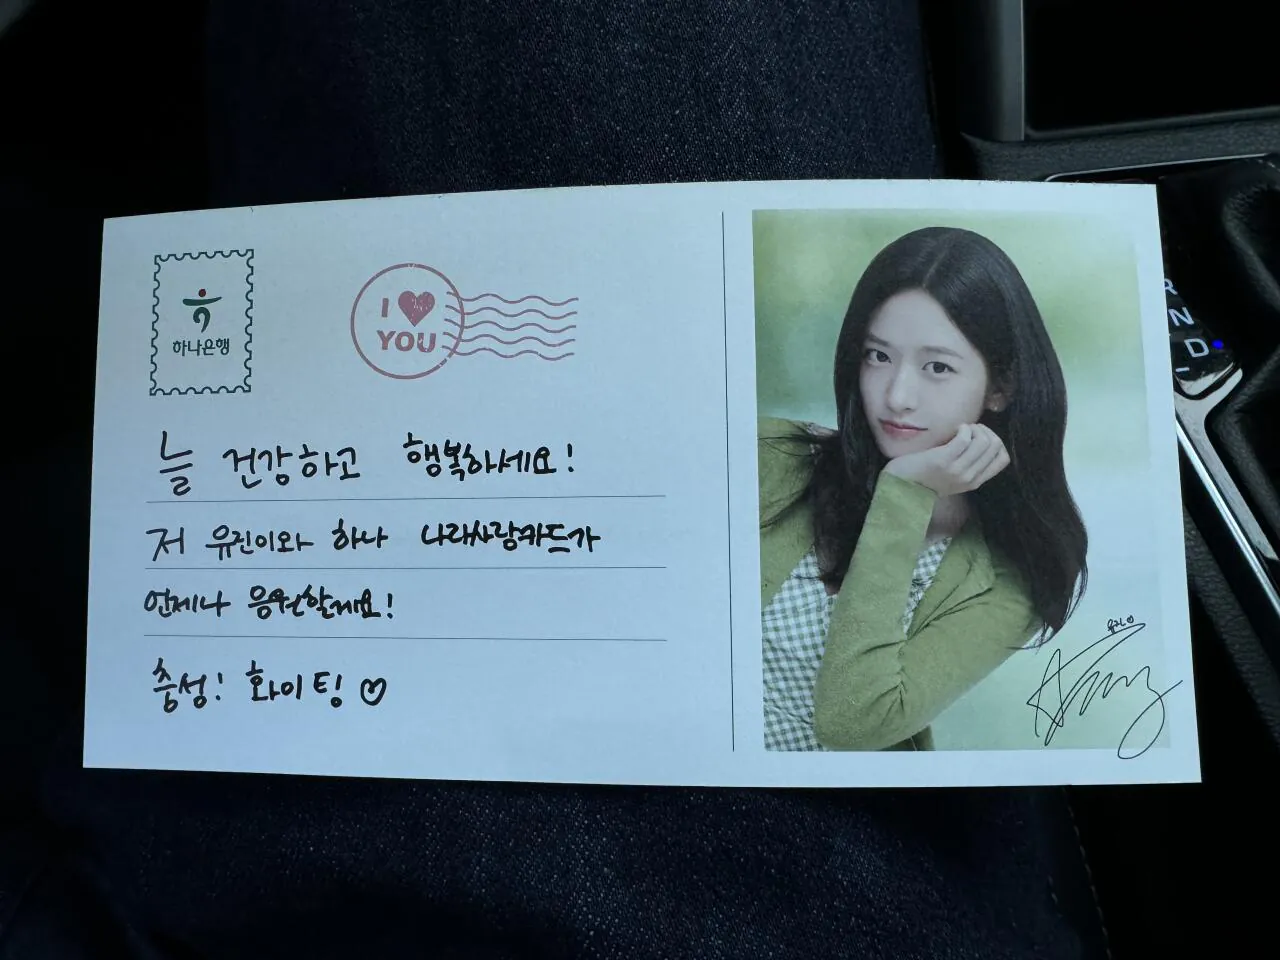 하나은행
I ♥
YOU
늘 건강하고 행복하세요!
저 유진이와 하나 나라사랑카드가
언제나 응원할게요!
충성! 화이팅 ♡
유진♡
R
N
D